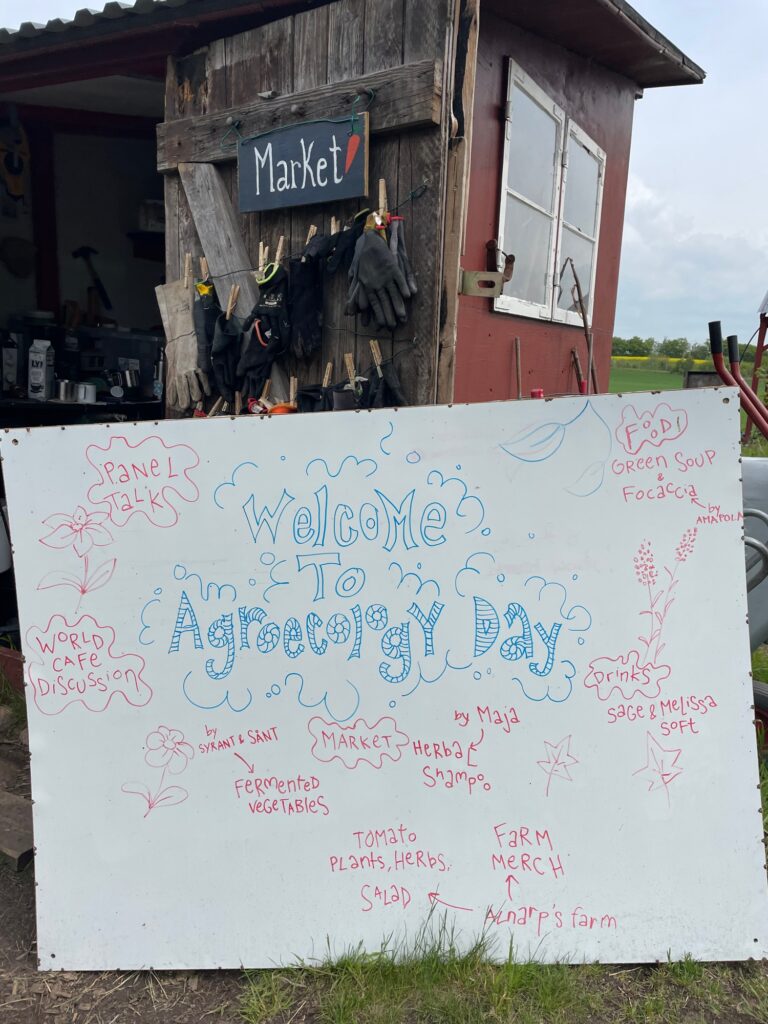 Market
Welcome
To
Agroecology Day
PANEL
TALK
WORLD
CAFE
DISCUSSION
FOOD!
GREEN SOUP
&
FOCACCIA
by
AMAPOLA
DRINKS
SAGE & MELISSA
SOFT
MARKET
by
SYRANT & SÅNT
FERMENTED
VEGETABLES
by Maja
HERBAL
Shampoo
TOMATO
PLANTS, HERBS,
SALAD
FARM
MERCH
ALNARP'S FARM